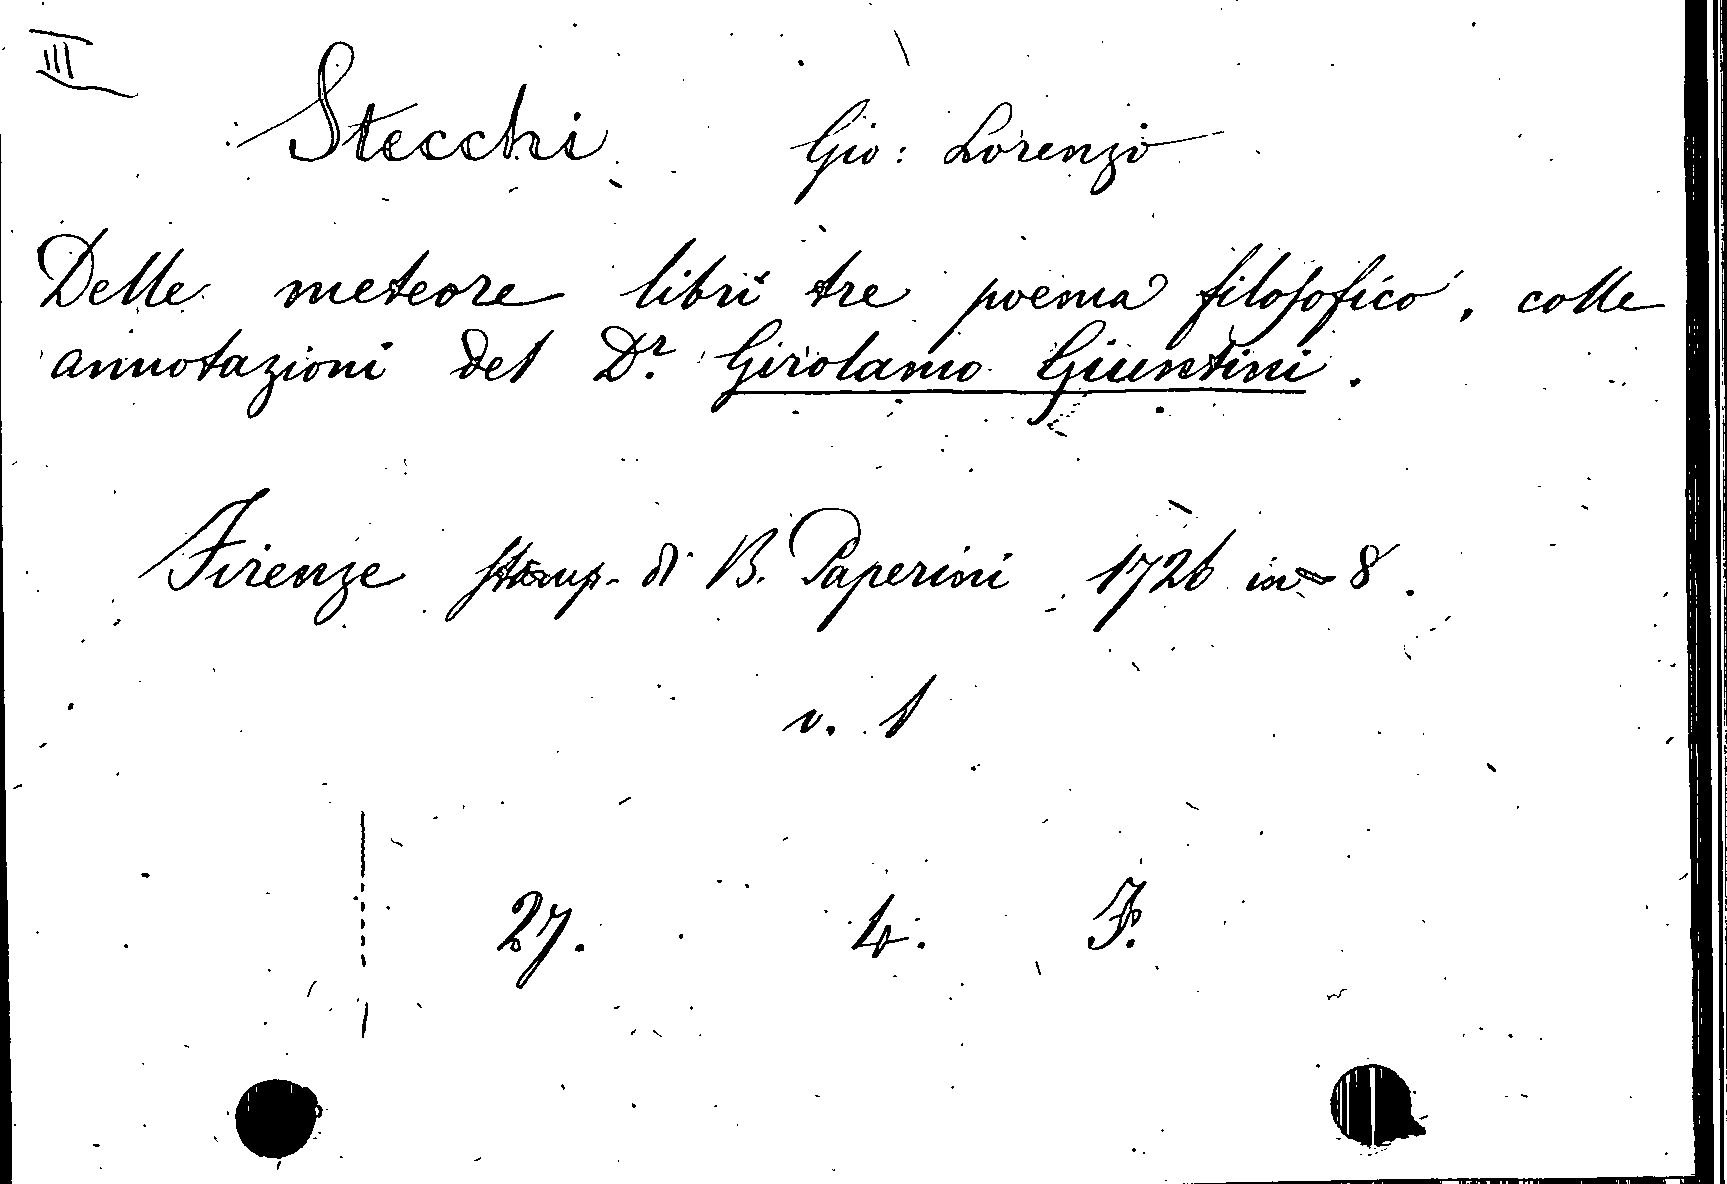 III
Stecchi Gio: Lorenzo
Delle meteore libri tre poema filosofico, colle
annotazioni del Dr. Girolamo Giuntini.
Firenze stamp. di B. Paperini 1726 in-8.
v. 1
27. 4. F.